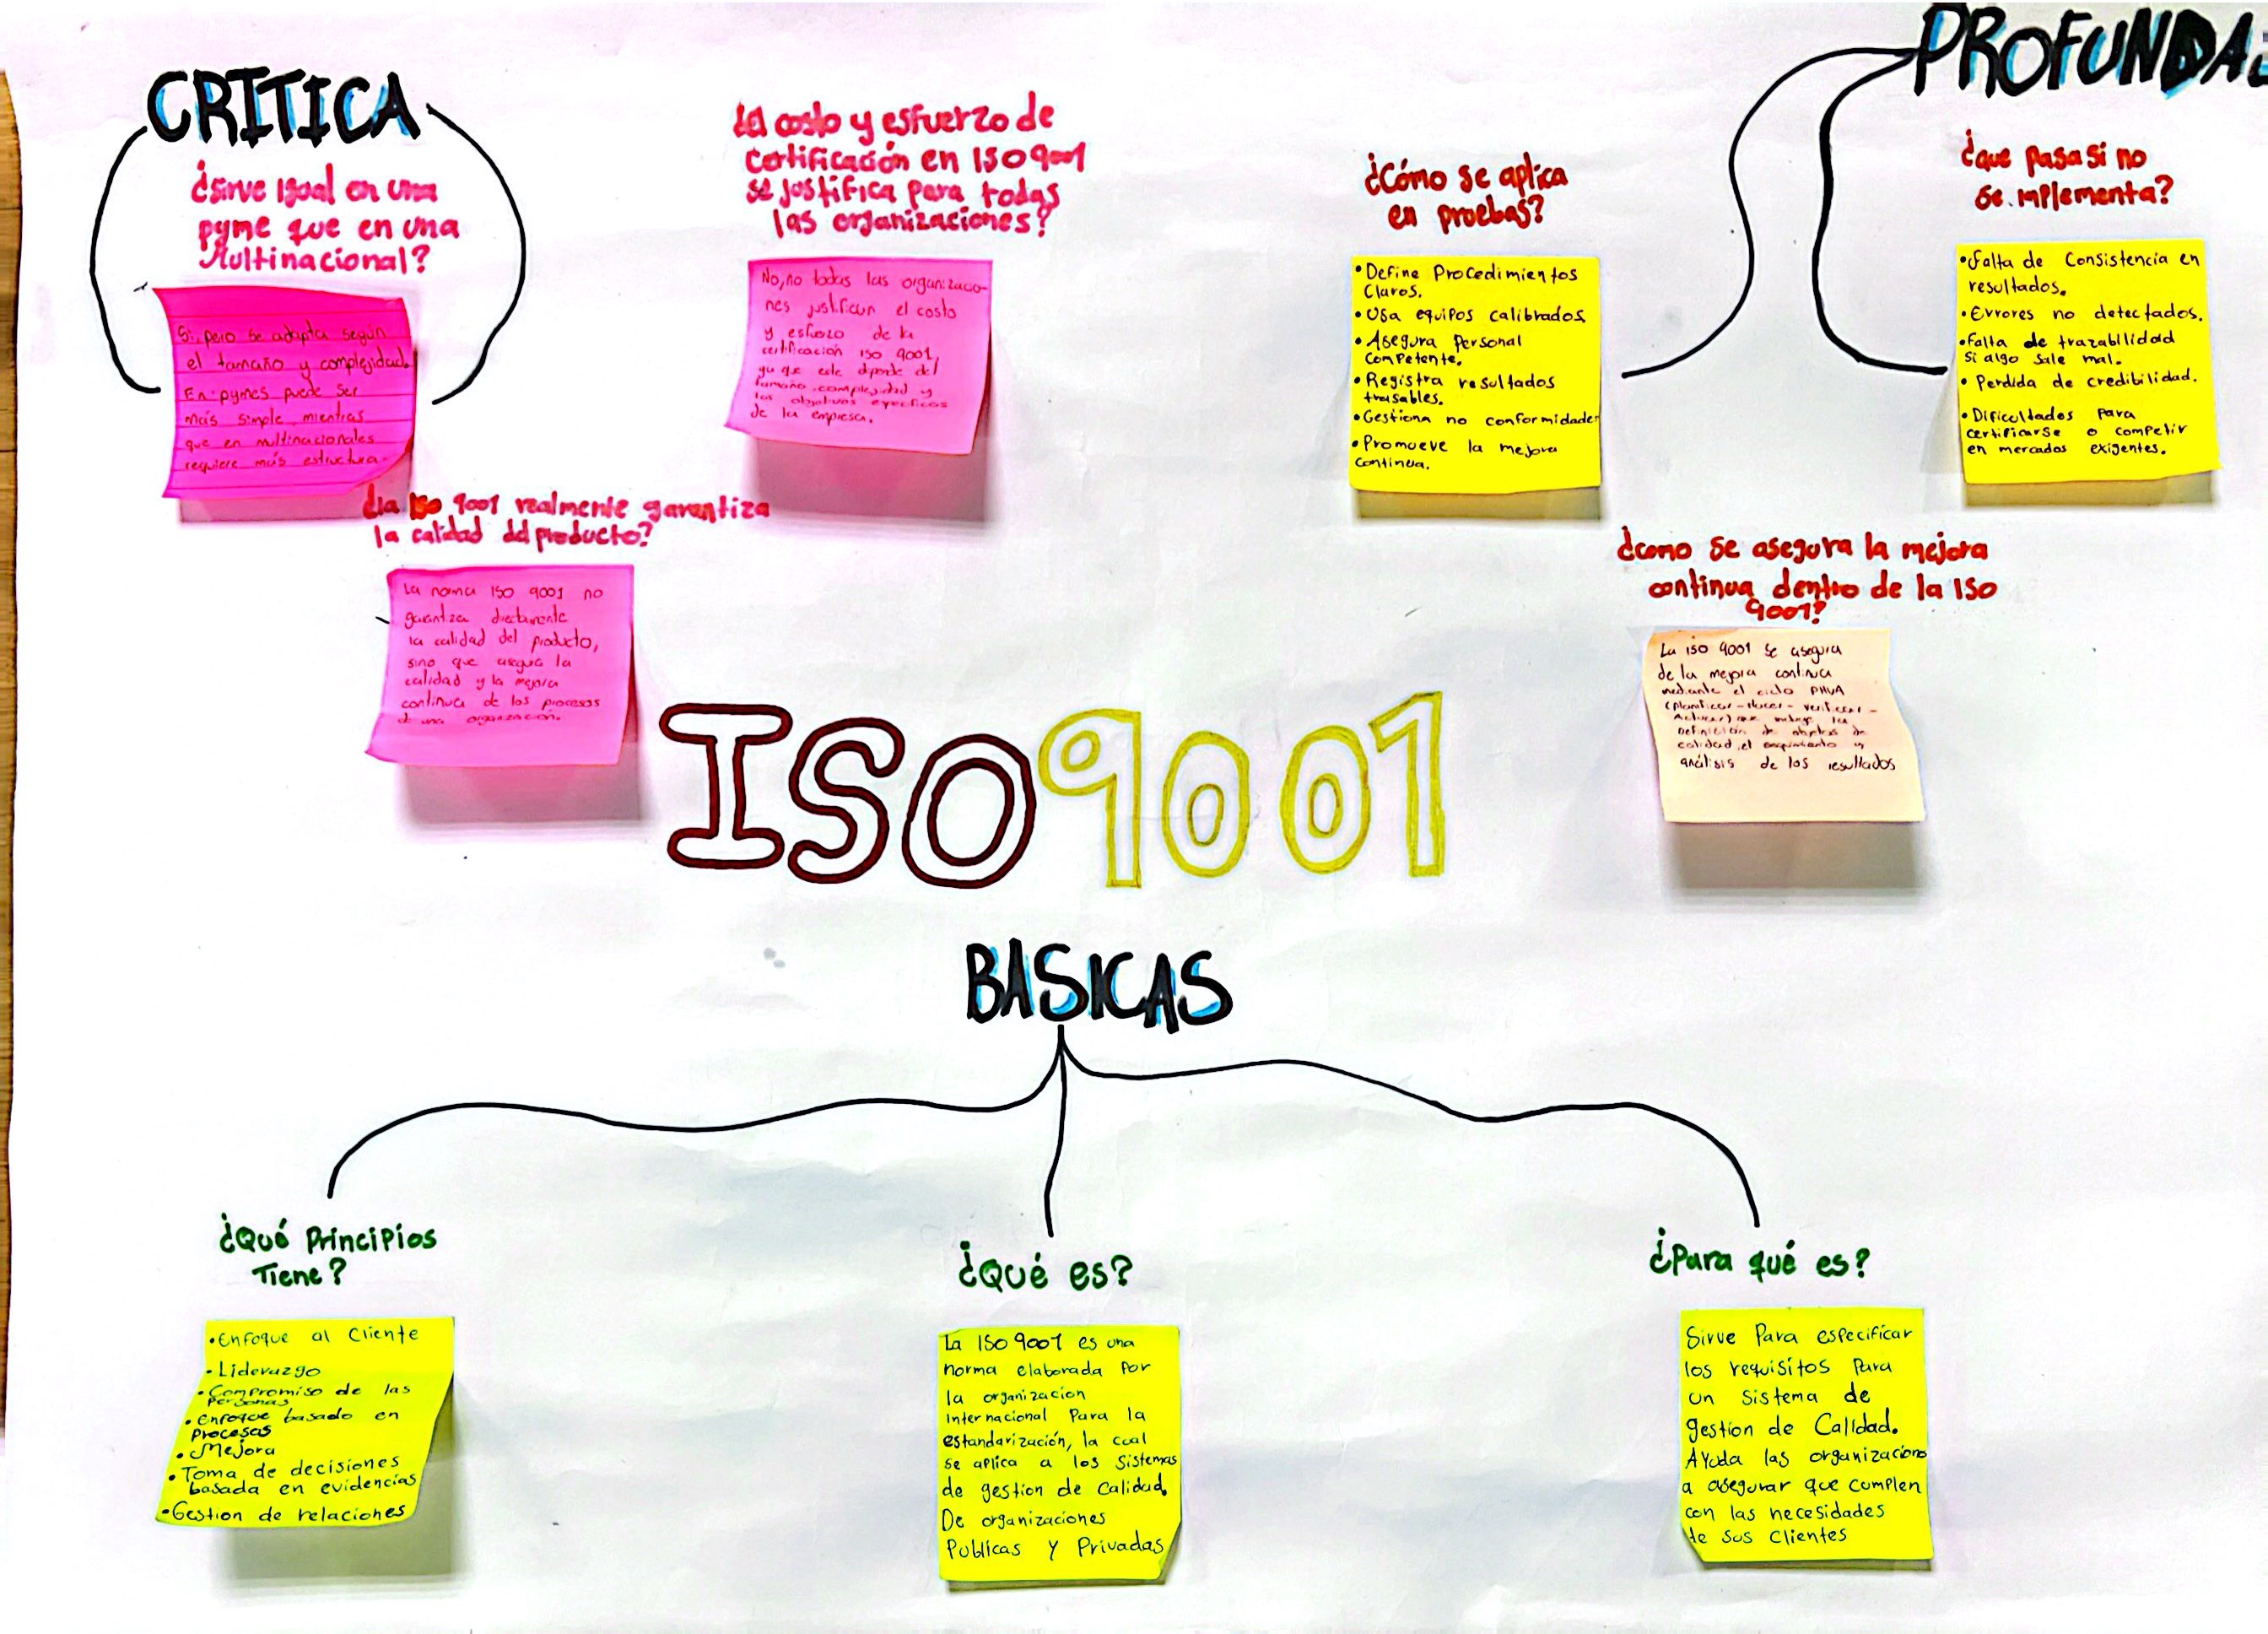 CRITICA
¿Sirve igual en una
pyme que en una
Multinacional?
Si, pero se adapta según
el tamaño y complejidad.
En pymes puede ser
más simple, mientras
que en multinacionales
requiere más estructura.
¿El costo y esfuerzo de
certificación en ISO 9001
se justifica para todas
las organizaciones?
No, no todas las organizacio-
nes justifican el costo
y esfuerzo de la
certificación ISO 9001,
ya que este depende del
tamaño complejidad y
los objetivos específicos
de la empresa.
¿La ISO 9001 realmente garantiza
la calidad del producto?
La norma ISO 9001 no
garantiza directamente
la calidad del producto,
sino que asegura la
calidad y la mejora
continua de los procesos
de una organización.
PROFUNDAS
¿Cómo se aplica
en pruebas?
• Define Procedimientos
Claros.
• Usa equipos calibrados
• Asegura Personal
Competente.
• Registra resultados
trasables.
• Gestiona no conformidades
• Promueve la mejora
Continua.
¿que pasa si no
se implementa?
• Falta de Consistencia en
resultados.
• Errores no detectados.
• Falta de trazabilidad
Si algo sale mal.
• Perdida de credibilidad.
• Dificultades para
certificarse o competir
en mercados exigentes.
¿como se asegura la mejora
continua dentro de la ISO
9001?
La iso 9001 se asegura
de la mejora continua
mediante el ciclo PHVA
(Planificar - Hacer - Verificar -
Actuar) que incluye la
Definición de
calidad, el seguimiento y
análisis de los resultados
ISO 9001
BASICAS
¿Qué Principios
Tiene?
• Enfoque al Cliente
• Liderazgo
• Compromiso de las
Personas
• Enfoque basado en
Procesos
• Mejora
• Toma de decisiones
basada en evidencias
• Gestion de relaciones
¿Qué es?
La ISO 9001 es una
norma elaborada Por
la organizacion
Internacional Para la
estandarización, la cual
se aplica a los Sistemas
de gestion de Calidad.
De organizaciones
Publicas Y Privadas
¿Para qué es?
Sirve Para especificar
los requisitos Para
un Sistema de
gestion de Calidad.
Ayuda las organizaciono
a asegurar que cumplen
con las necesidades
de Sus Clientes